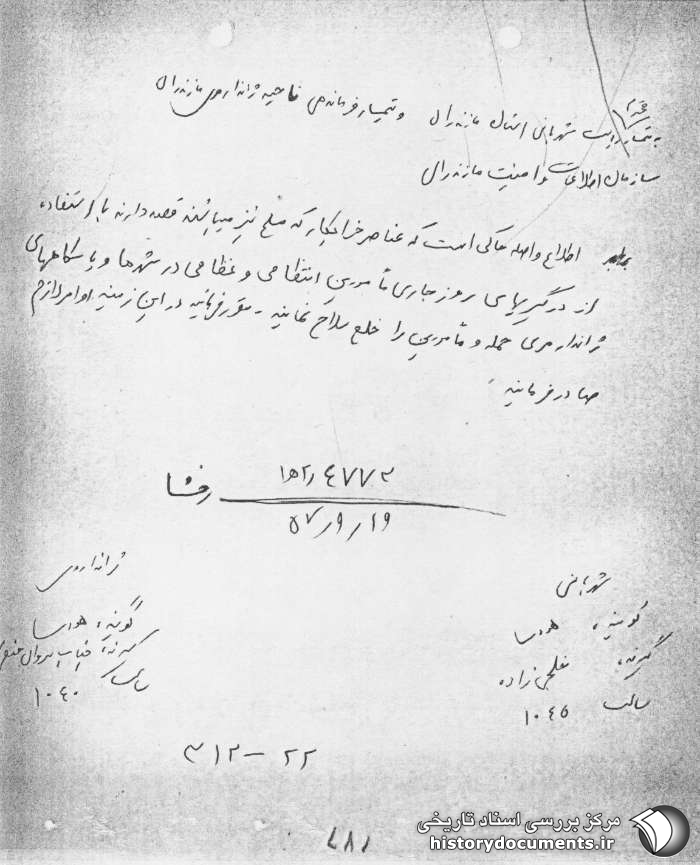 به تیمسار ریاست شهربانی استان مازندران و تیمسار فرماندهی ناحیه ژاندارمری مازندران
سازمان اطلاعات و امنیت مازندران
اطلاع واصله حاکی است که عناصر خرابکار که مسلح نیز میباشند قصد دارند با استفاده
از درگیریهای روز جاری مأمورین انتظامی و نظامی در شهرها و پاسگاههای
ژاندارمری حمله و مأمورین را خلع سلاح نمایند - مقرر فرمائید در این زمینه اوامر لازم
صادر فرمائید
۴۷۷۳ /۲ ه۱
۵۷/۹/۱۹
شهربانی
گوینده
گیرنده
ساعت ۱۰۴۵
ژاندارمری
گوینده
گیرنده
ساعت ۱۰۴۰
۳۱۲-۲۲
۲۸۱
مرکز بررسی اسناد تاریخی
historydocuments.ir